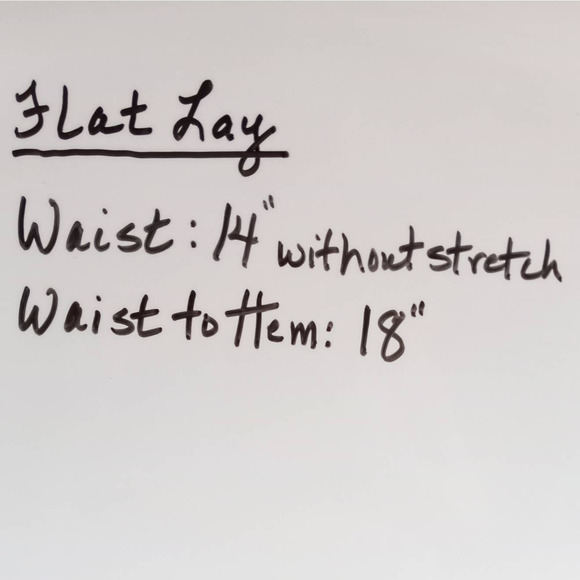 Flat Lay
Waist: 14" without stretch
Waist to Hem: 18"